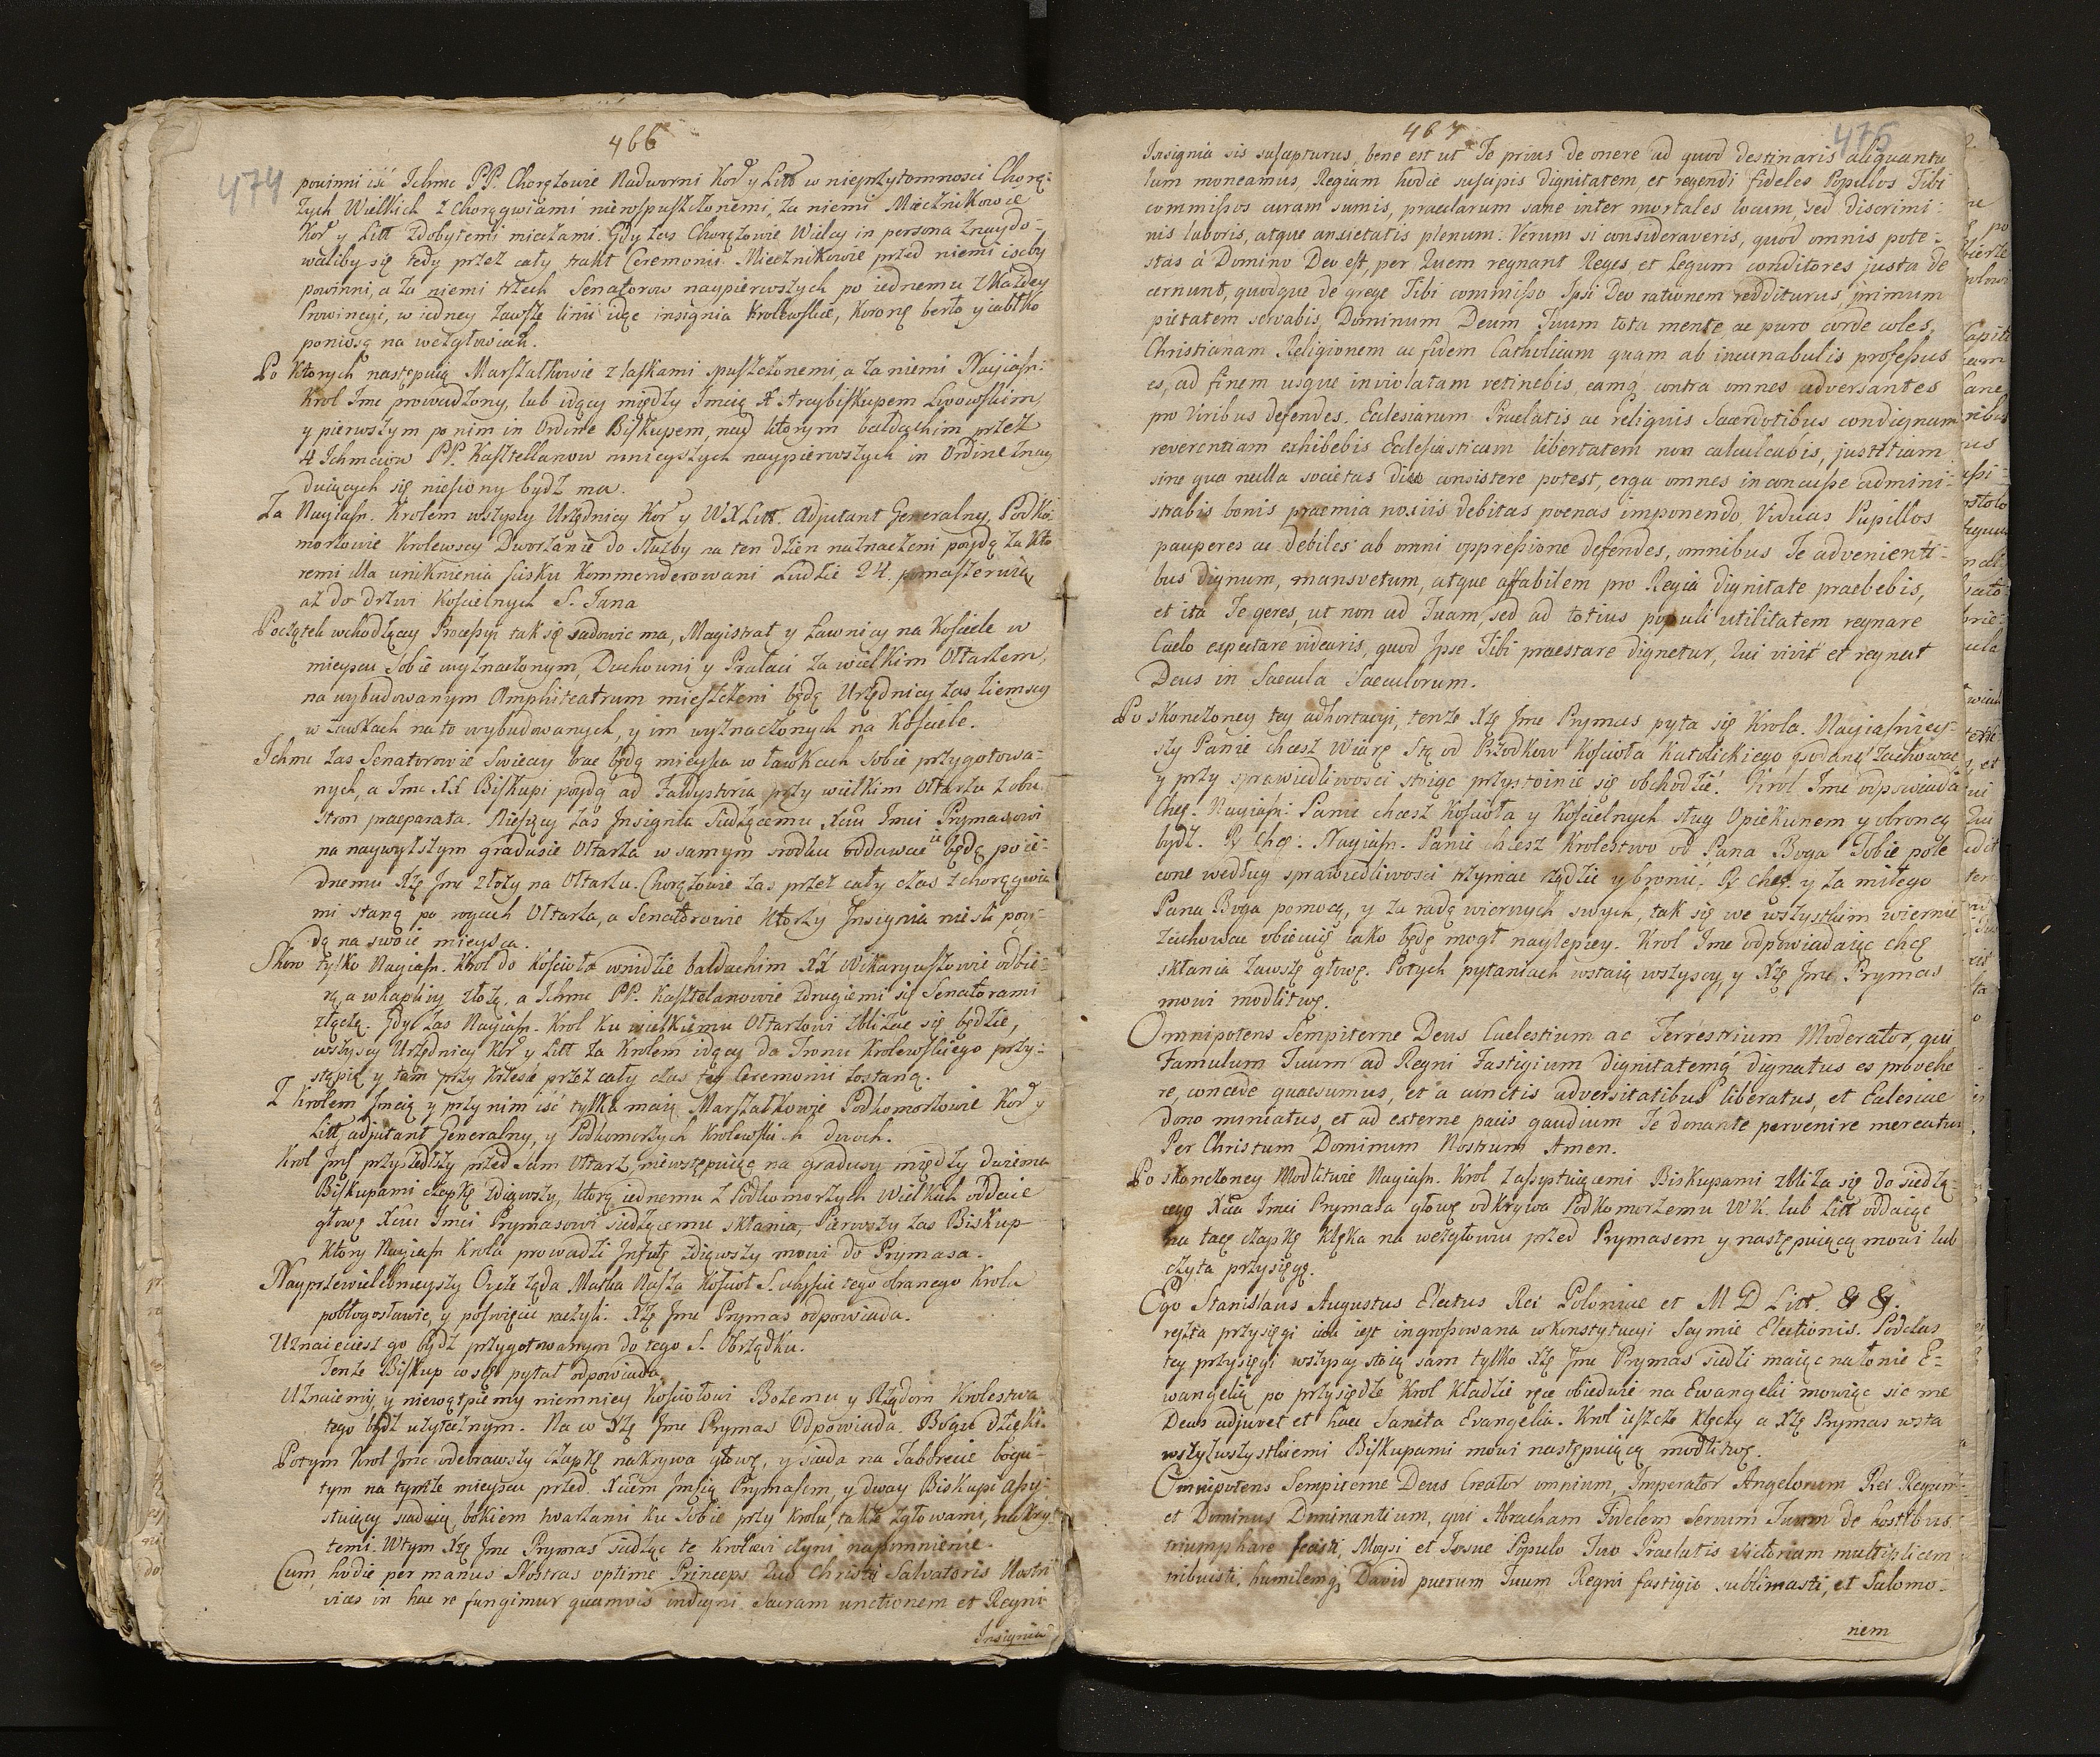 466
474
powinni iść Ichmc PP. Chorążowie Nadworni Kor y Litt w nieprzytomnosci Chorą:
żych Wielkich z chorągwiami nierospuszczonemi, za niemi Miecznikowie
Kor y Litt zdobytemi mieczami. Gdy zas Chorążowie Wielcy in persona znaydo-
waliby się tedy przez cały trakt Ceremonii Miecznikowie przed niemi iscby
powinni, a za niemi trzech Senatorow naypierwszych po iednemu z każdey
Prowincyi, w iedney zawsze linii idąc insignia Krolewskie, Koronę berło y iabłko
poniosą na wezgłowiach.
Po ktorych następuią Marszałkowie z laskami spuszczonemi, a za niemi Nayiasn:
Krol Jmc prowadzony, lub idący między Jmcią X Arcybiskupem Lwowskim,
y pierwszym po nim in Ordine Biskupem, nad ktorym baldachim przez
4 Ichmciow PP. Kasztellanow mnieyszych naypierwszych in Ordine znay
duiących się niesiony bydź ma.
Za Nayiasn. Krolem wszyscy Urzędnicy Kor y WXLitt. Adjutant Generalny, Podko-
morzowie Krolewscy Dworzanie do służby na ten dzien naznaczeni poydą, za kto
remi dla uniknienia scisku Kommenderowani Ludzie 24. pomaszeruią
aż do drzwi Koscielnych S. Jana
Początek wchodzący Processyi tak się sadowic ma, Magistrat y Ławnicy na Kosciele w
mieyscu sobie wyznaczonym, Duchowni y Prałaci za wielkim Ołtarzem,
na wybudowanym Amphiteatrum mieszczeni będą Urzędnicy zas ziemscy
w Ławkach na to wybudowanych, y im wyznaczonych na Kosciele.
Ichmc zas Senatorowie Swieccy brac będą mieysca w ławkach sobie przygotowa-
nych, a Jmc XX Biskupi poydą ad Faldystoria przy wielkim Ołtarzu z obu
stron praeparata. Niosący zas Insignia siedzącemu Xciu Jmci Prymasowi
na naywyższym gradusie Ołtarza w samym srodku oddawac ie będą poie-
dnemu Xże Jmc złoży na Ołtarzu. Chorążowie zas przez cały czas z chorągwia
mi staną po rogach Ołtarza, a Senatorowie ktorzy Insignia niesli poy-
dą na swoie mieysca.
Skoro tylko Nayiasn. Krol do Koscioła wnidzie baldachim XX Wikaryuszowie odbie-
rą, a w kaplicy złożą, a Ichmc PP. Kasztelanowie z drugiemi się Senatorami
złączą. Gdy zas Nayiasn. Krol ku wielkiemu Ołtarzowi zbliżac się będzie,
wszyscy Urzędnicy Kor y Litt za Krolem idący do Tronu Krolewskiego przy-
stąpią y tam przy krzesle przez cały czas tey Ceremonii zostaną.
Z Krolem Jmcią y przy nim iść tylko maią Marszałkowie Podkomorzowie Kor y
Litt, adjutant Generalny, y Podkomorzych Krolewskich dwoch.
Krol Jmc przyszedłszy przed sam Ołtarz, niewstępuiąc na gradusy między dwiema
Biskupami czapkę zdiąwszy, ktorą iednemu z Podkomorzych Wielkich oddaie
głowę Xciu Jmci Prymasowi siedzącemu skłania, Pierwszy zas Biskup
ktory Nayiasn Krola prowadzi Infułę zdiąwszy mowi do Prymasa.
Nayprzewielebnieyszy Oycze żąda Matka Nasza Kosciół S. abyscie tego obranego Krola
pobłogosławic, y poswięcic raczyli. Xżę Jmc Prymas odpowiada.
Uznaieciesz go bydź przygotowanym do tego S. Obrządku.
Tenże Biskup co się pytał odpowiada
Uznaiemy, y niewątpiemy niemniey Kosciołowi Bożemu y Rządom Krolestwa
tego bydź użytecznym. Na co Xżę Jmc Prymas Odpowiada. Bogu dzięki.
Potym Krol Jmc odebrawszy Czapkę nakrywa głowę, y siada na Taborecie boga-
tym na tymże mieyscu przed Xciem Jmcią Prymasem, y dway Biskupi assy-
stuiący siadaią bokiem twarzami ku sobie przy Krolu, także z głowami, nakry-
temi. Wtym Xżę Jmc Prymas siedząc te Krolowi czyni napomnienie.
Cum hodie per manus Nostras optime Princeps, qui Christi Salvatoris Nostri
vices in hac re fungimur quamvis indigni Sacram unctionem et Regni
Insignia
467
475
Insignia sis suscepturus, bene est ut Te prius de onere ad quod destinaris aliquantu
lum moneamus, Regiam hodie suscipis dignitatem, et regendi fideles Populos Tibi
commissos curam sumis, praeclarum sane inter mortales locum, sed discrimi:
nis laboris, atque anxietatis plenum. Verum si consideraveris, quod omnis pote-
stas a Domino Deo est, per Quem regnant Reges, et Legum conditores justa de
cernunt, quodque de grege Tibi commisso Ipsi Deo rationem redditurus, primum
pietatem servabis, Dominum Deum Tuum tota mente, ac puro corde coles,
Christianam Religionem ac fidem Catholicam quam ab incunabulis professus
es, ad finem usque inviolatam retinebis, eamq contra omnes adversantes
pro viribus defendes. Eclesiarum Praelatis ac reliquis Sacerdotibus condignam
reverentiam exhibebis Eclesiasticam libertatem non calculcabis, justitiam
sine qua nulla societas diu consistere potest, erga omnes inconcusse admini-
strabis bonis praemia noxiis debitas poenas imponendo, Viduas Pupillos
pauperes ac debiles ab omni oppressione defendes, omnibus Te advenienti-
bus dignum, mansvetum, atque affabilem pro Regia dignitate praebebis,
et ita Te geres, ut non ad Tuam, sed ad totius populi utilitatem regnare
Caelo expectare videaris, quod Ipse Tibi praestare dignetur, Qui vivit et regnat
Deus in Saecula Saeculorum.
Po skonczoney tey adhortacyi, tenże Xżę Jmc Prymas pyta się Krola. Nayiasniey-
szy Panie chcesz Wiarę Stą od Przodkow Kościoła Katolickiego podaną zachowac,
y przy sprawiedliwosci stoiąc przystoinie się obchodzić. Krol Jmc odpowiada
Chcę. Nayiasn: Panie chcesz Koscioła y Koscielnych sług Opiekunem y obroncą
bydź. R Chcę: Nayiasn. Panie chcesz Krolestwo od Pana Boga Tobie pole
cone według sprawiedliwosci trzymac rządzic y bronic, R Chcę. y za miłego
Pana Boga pomocą, y za radą wiernych swych, tak się we wszystkim wiernie
zachowac obiecuię iako będę mogł naylepiey. Krol Jmc odpowiadaiąc chcę
skłania zawsze głowę. Potych pytaniach wstaią wszyscy, y Xżę Jmc Prymas
mowi modlitwę.
Omnipotens Sempiterne Deus Caelestium ac Terrestrium Moderator, qui
Famulum Tuum ad Regni Fastigium dignitatemq dignatus es provehe
re, concede quaesumus, et a cunctis adversitatibus liberatus, et Eclesiae
dono munitus, et ad externe pacis gaudium Te donante pervenire mereatur
Per Christum Dominum Nostrum Amen.
Po skonczoney Modlitwie Nayiasn. Krol z assystuiącemi Biskupami zbliża się do siedzą-
cego Xcia Jmci Prymasa głowę odkrywa Podkomorzemu WK. lub Litt oddaiąc
na tacę czapkę klęka na wezgłowiu przed Prymasem y następuiącą mowi lub
czyta przysięgę.
Ego Stanislaus Augustus Electus Rex Poloniae et M D Litt. & &.
reszta przysięgi iak iest ingrossowana w konstytucyi Seymie Electionis. Podczas
tey przysięgi wszyscy stoią sam tylko Xżę Jmc Prymas siedzi maiąc na łonie E-
wangelią po przysiędze Krol kładzie ręce obiedwie na Ewangelii mowiąc sic me
Deus adjuvet et haec Sancta Evangelia. Krol ieszcze klęczy a Xżę Prymas wsta
wszy z wszystkiemi Biskupami mowi następuiącą modlitwę.
Omnipotens Sempiterne Deus Creator omnium, Imperator Angelorum Rex Regum
et Dominus Dominantium, qui Abraham Fidelem Servum Tuum de hostibus
triumphare fecisti, Moysi et Josue Populo Tuo Praelatis victoriam multiplicem
tribuisti, humilemq David puerum Tuum Regni fastigio sublimasti, et Salomo-
nem